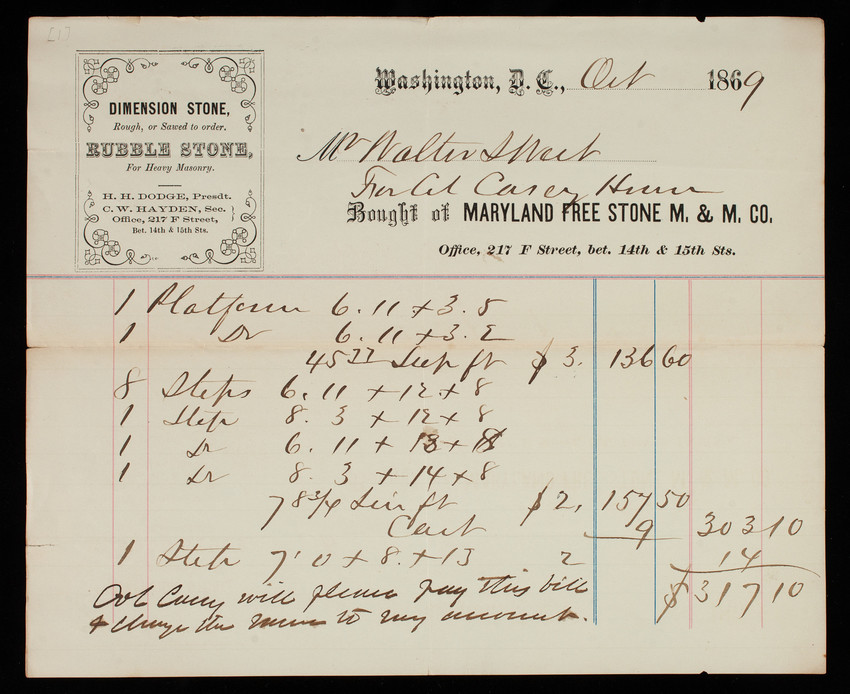 [1]
DIMENSION STONE,
Rough, or Sawed to order.
RUBBLE STONE,
For Heavy Masonry.
H. H. DODGE, Presdt.
C. W. HAYDEN, Sec.
Office, 217 F Street,
Bet. 14th & 15th Sts.
Washington, D. C., Oct 1869
Mr Walter S West
For Col Casey House
Bought of MARYLAND FREE STONE M. & M. CO.
Office, 217 F Street, bet. 14th & 15th Sts.
1 Platform 6.11 + 3.8
1 Do 6.11 + 3.2
45 Sup ft $3. 136 60
8 Steps 6.11 + 12 + 8
1 Step 8.3 + 12 + 8
1 Do 6.11 + 13 + 8
1 Do 8.3 + 14 + 8
78 3/4 Lin ft $2. 157 50
Cart 9 303 10
1 Step 7'0 + 8. + 13 2 14
$317 10
Col Casey will please pay this bill
& charge the same to my account.